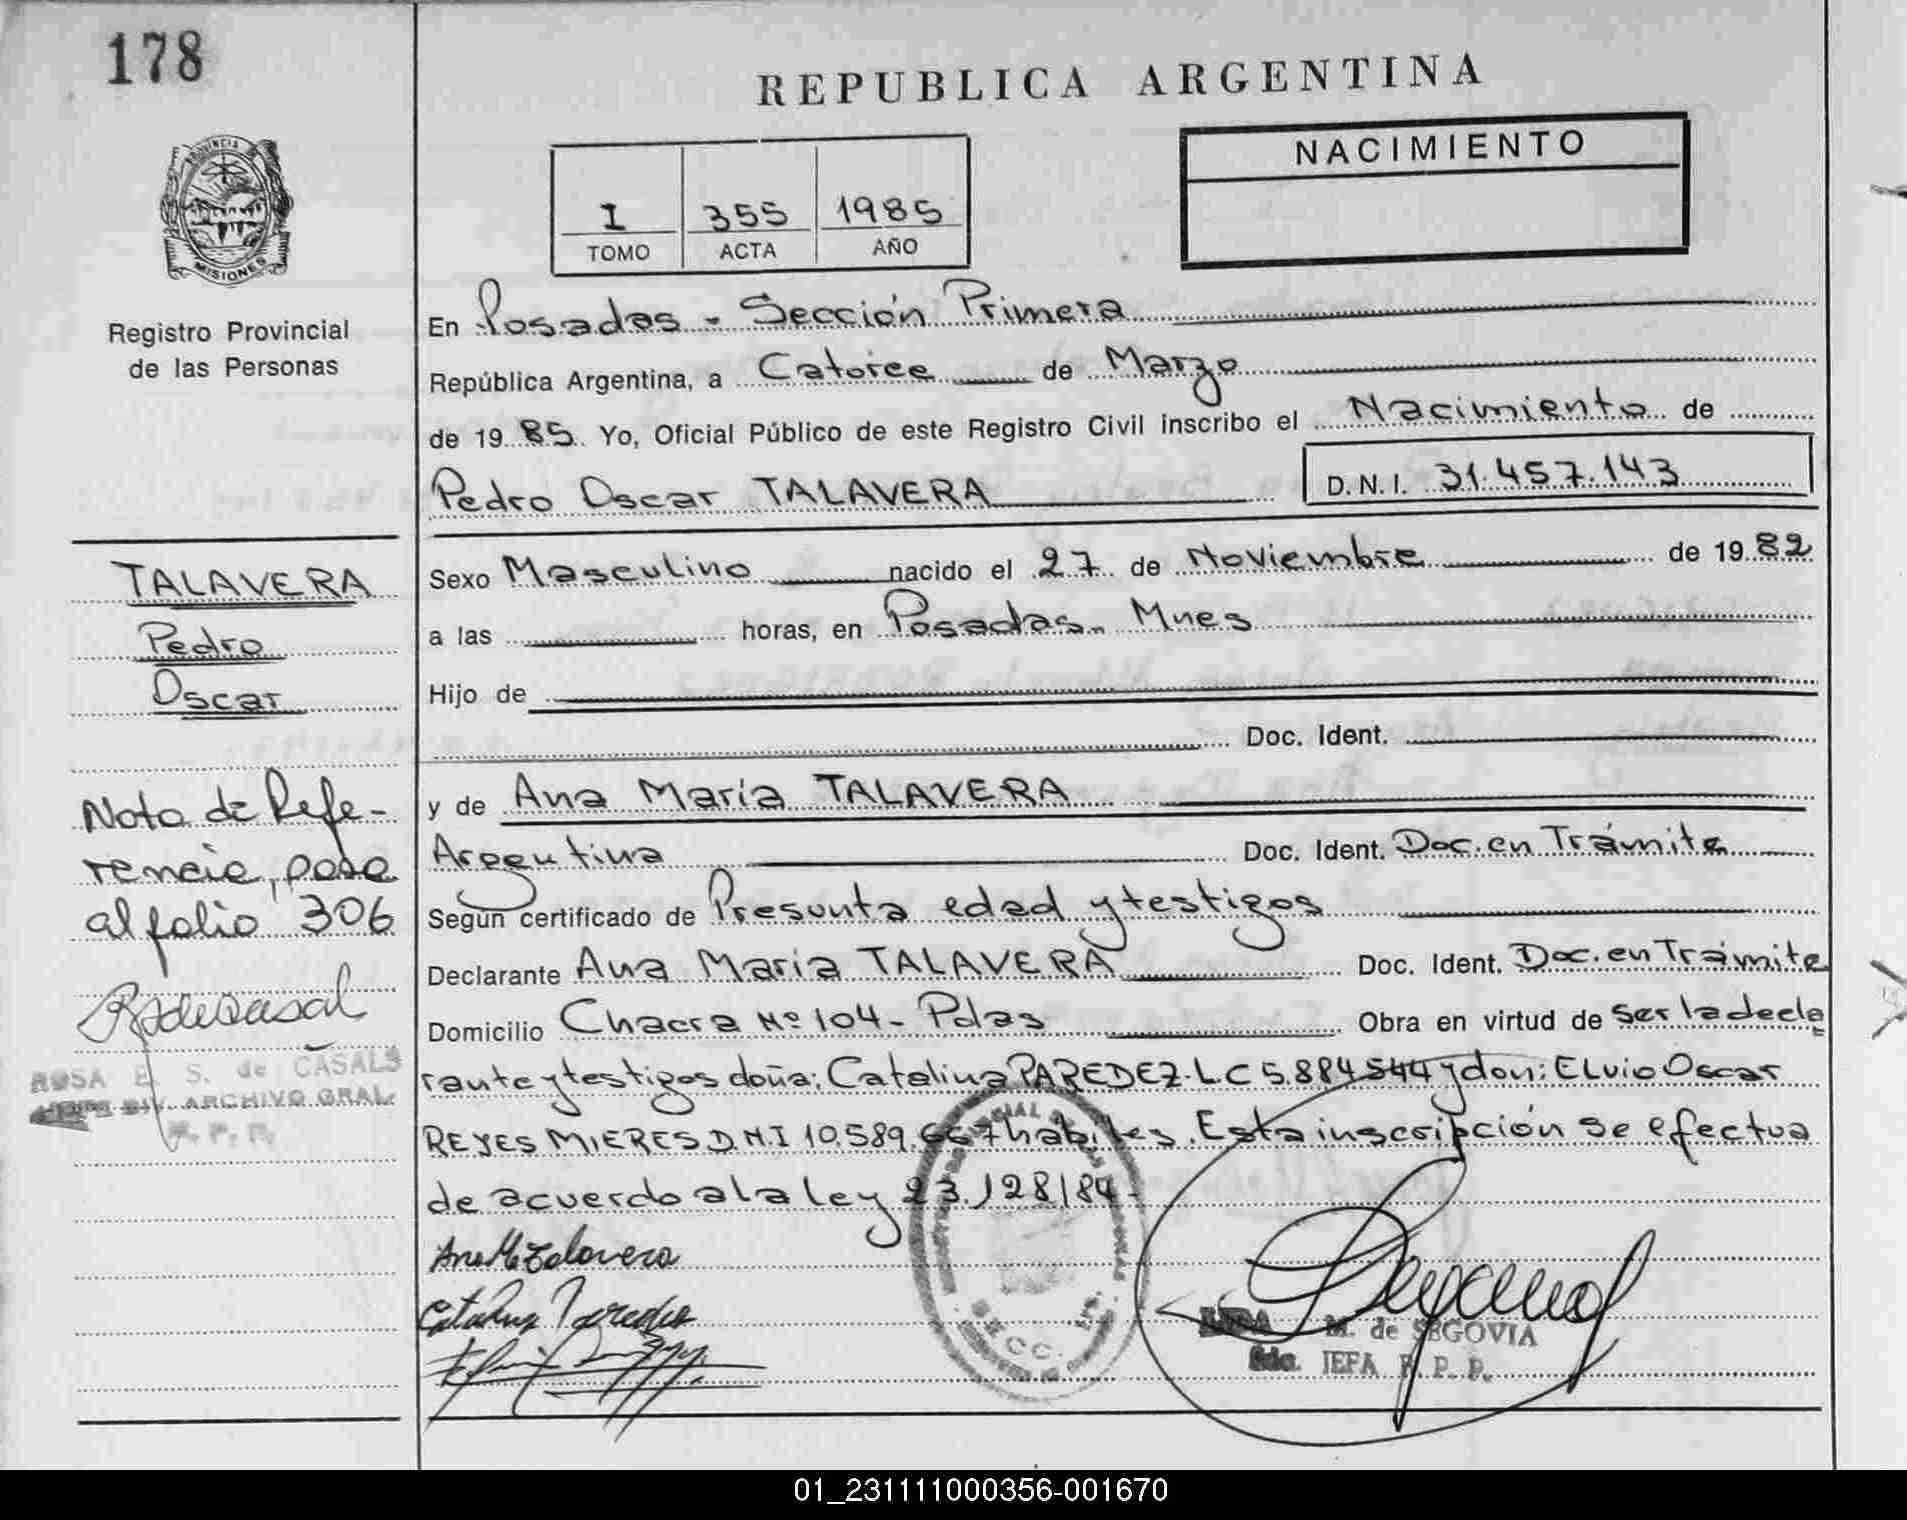 178
REPUBLICA ARGENTINA
PROVINCIA
MISIONES
Registro Provincial
de las Personas
I 355 1985
TOMO ACTA AÑO
NACIMIENTO
En Posadas - Sección Primera
República Argentina, a Catorce de Marzo
de 1985 Yo, Oficial Público de este Registro Civil inscribo el Nacimiento de
Pedro Oscar TALAVERA D.N.I. 31.457.143
Sexo Masculino nacido el 27 de Noviembre de 1982
a las horas, en Posadas. Mnes
Hijo de
Doc. Ident.
y de Ana Maria TALAVERA
Argentina Doc. Ident. Doc. en Trámite
Según certificado de Presunta edad y testigos
Declarante Ana Maria TALAVERA Doc. Ident. Doc. en Trámite
Domicilio Chacra Nº 104 - Pdas Obra en virtud de ser la decla
rante y testigos doña: Catalina PAREDEZ. L C 5.884544 y don: ELvio Oscar
REYES MIERES D.N.I 10.589.667 habiles. Esta inscripción se efectua
de acuerdo a la ley 23.128/84-
Ana M Talavera
Catalina Paredes
M. de SEGOVIA
JEFA R. P. P.
TALAVERA
Pedro
Oscar
Nota de Refe-
rencia, pasa
al folio 306
ROSA E. S. de CASALS
DIV. ARCHIVO GRAL.
R. P. P.
01_231111000356-001670